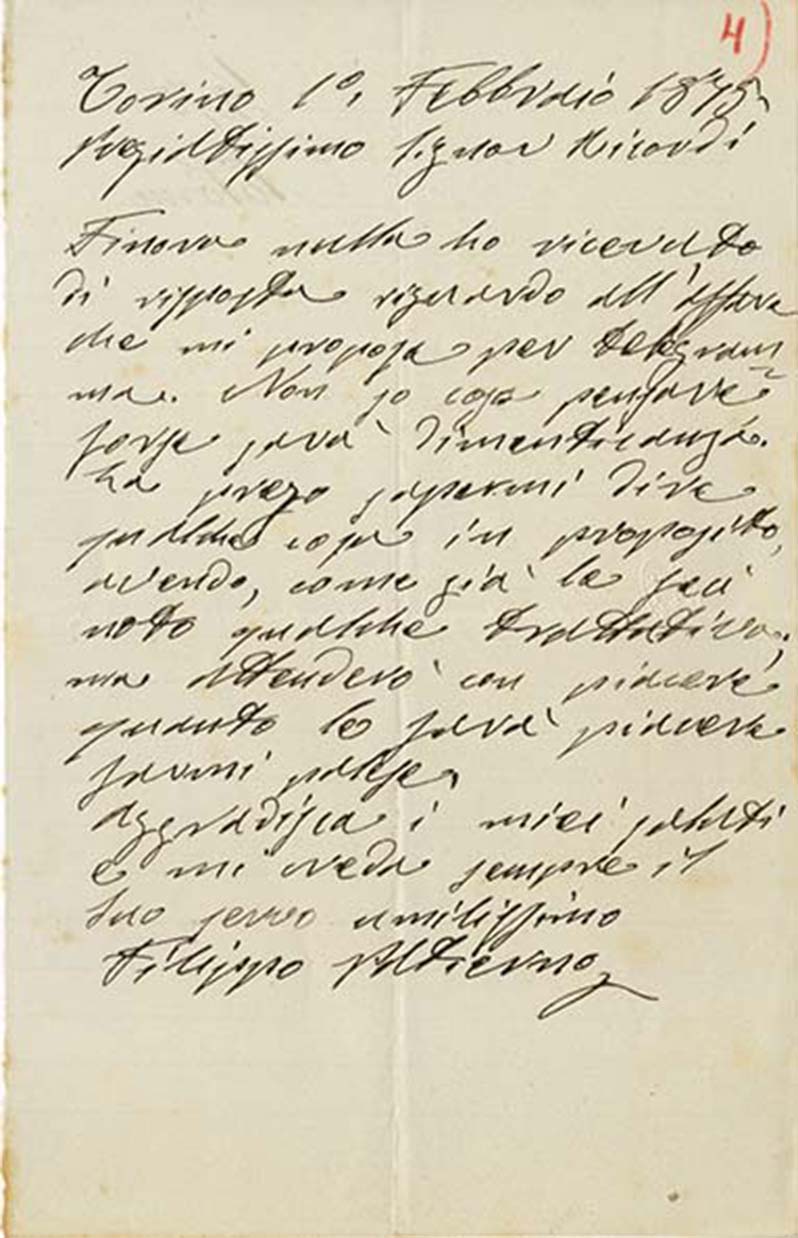 4)
Torino 1º, Febbraio 1875,
Pregiattissimo Signor Ricordi
Finora nulla ho ricevuto
di risposta riguardo all'affare
che mi propose per telegram
ma. Non so cosa pensare
forse sarà dimenticanza.
La prego sapermi dire
qualche cosa in proposito,
avendo, come già le feci
noto qualche trattativa,
ma attenderò con piacere
quanto le sarà piacere
farmi palese,
Aggradisca i miei saluti
e mi creda sempre il
Suo servo umilissimo
Filippo